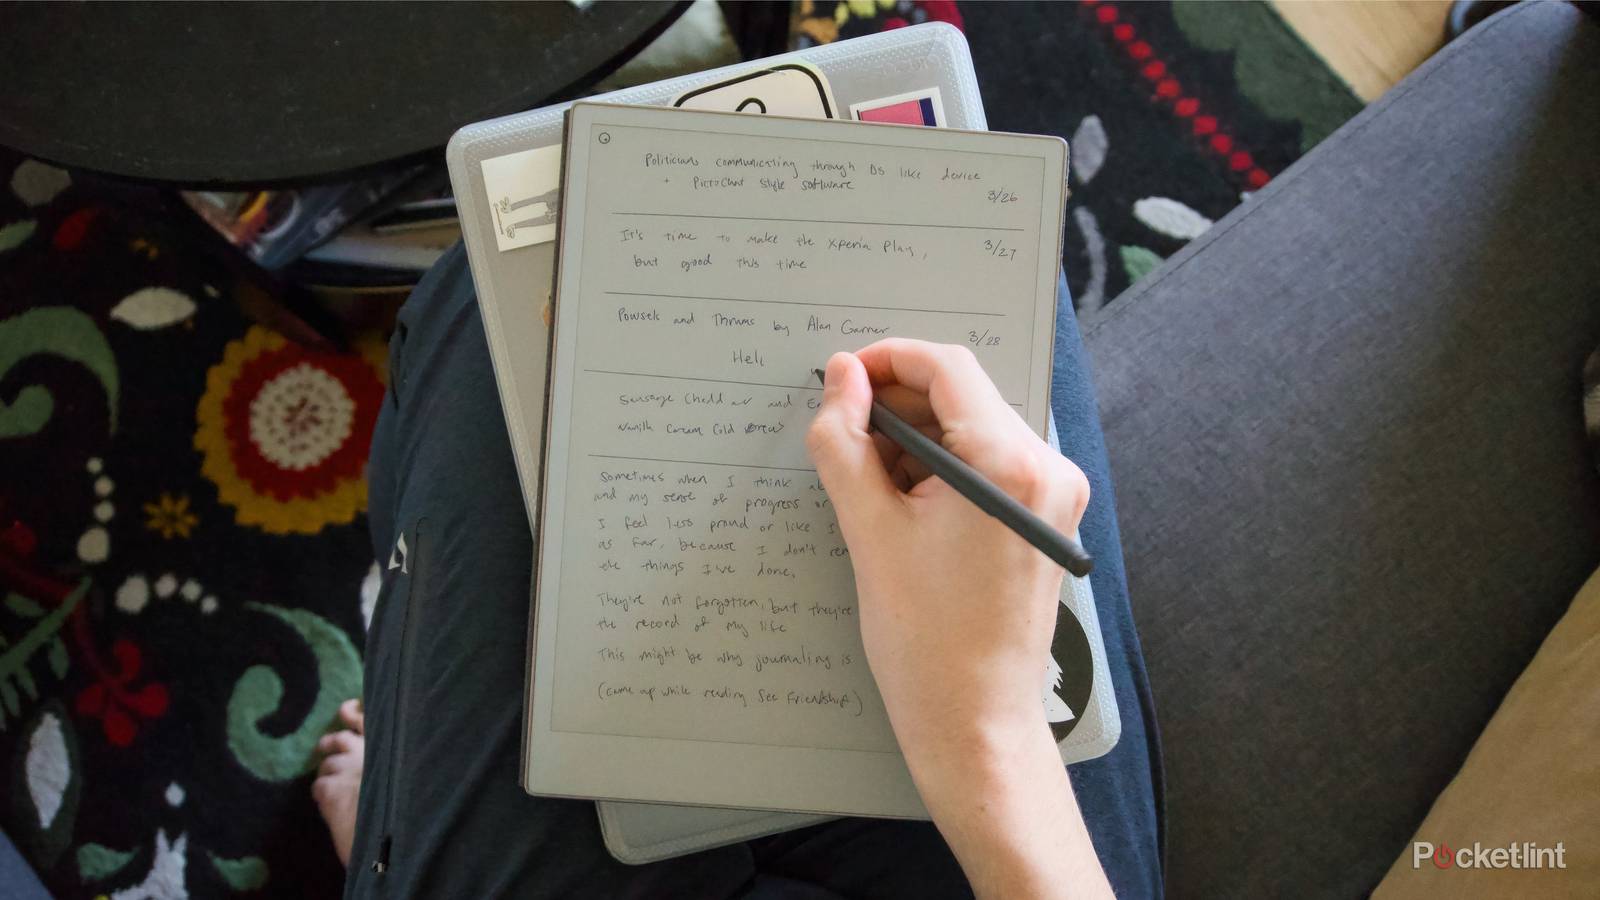 Politicians communicating through DS like device
+ PictoChat style software
3/26
It's time to make the Xperia Play,
3/27
but good this time
Powsels and Thrums by Alan Garner
3/28
Hel
Sausage Cheddar and
Vanilla Cream Cold Brew
Sometimes when I think
and my sense of progress or
I feel less proud or like I
as far, because I don't
the things I've done,
They're not forgotten, but they're
the record of my life
This might be why journaling is
(came up while reading See Friendship)
Pocket-lint